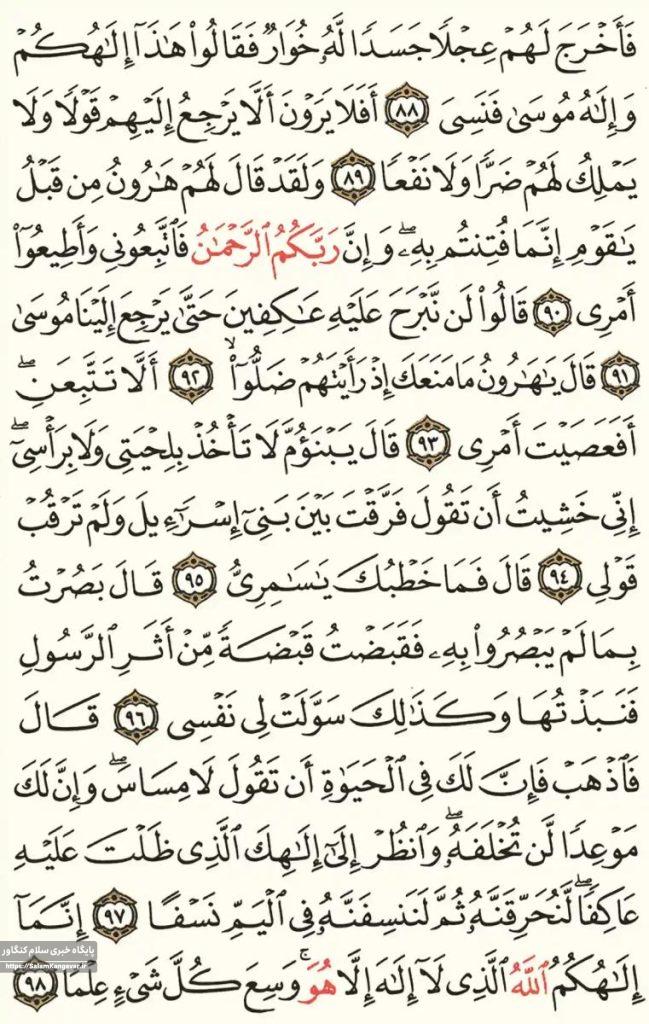 فَأَخْرَجَ لَهُمْ عِجْلًا جَسَدًا لَّهُۥ خُوَارٌ فَقَالُوا۟ هَٰذَآ إِلَٰهُكُمْ
وَإِلَٰهُ مُوسَىٰ فَنَسِىَ ﴿٨٨﴾ أَفَلَا يَرَوْنَ أَلَّا يَرْجِعُ إِلَيْهِمْ قَوْلًا وَلَا
يَمْلِكُ لَهُمْ ضَرًّا وَلَا نَفْعًا ﴿٨٩﴾ وَلَقَدْ قَالَ لَهُمْ هَٰرُونُ مِن قَبْلُ
يَٰقَوْمِ إِنَّمَا فُتِنتُم بِهِۦۖ وَإِنَّ رَبَّكُمُ ٱلرَّحْمَٰنُ فَٱتَّبِعُونِى وَأَطِيعُوٓا۟
أَمْرِى ﴿٩٠﴾ قَالُوا۟ لَن نَّبْرَحَ عَلَيْهِ عَٰكِفِينَ حَتَّىٰ يَرْجِعَ إِلَيْنَا مُوسَىٰ
﴿٩١﴾ قَالَ يَٰهَٰرُونُ مَا مَنَعَكَ إِذْ رَأَيْتَهُمْ ضَلُّوٓا۟ۙ ﴿٩٢﴾ أَلَّا تَتَّبِعَنِۖ
أَفَعَصَيْتَ أَمْرِى ﴿٩٣﴾ قَالَ يَبْنَؤُمَّ لَا تَأْخُذْ بِلِحْيَتِى وَلَا بِرَأْسِىٓۖ
إِنِّى خَشِيتُ أَن تَقُولَ فَرَّقْتَ بَيْنَ بَنِىٓ إِسْرَٰٓءِيلَ وَلَمْ تَرْقُبْ
قَوْلِى ﴿٩٤﴾ قَالَ فَمَا خَطْبُكَ يَٰسَٰمِرِىُّ ﴿٩٥﴾ قَالَ بَصُرْتُ
بِمَا لَمْ يَبْصُرُوا۟ بِهِۦ فَقَبَضْتُ قَبْضَةً مِّنْ أَثَرِ ٱلرَّسُولِ
فَنَبَذْتُهَا وَكَذَٰلِكَ سَوَّلَتْ لِى نَفْسِى ﴿٩٦﴾ قَالَ
فَٱذْهَبْ فَإِنَّ لَكَ فِى ٱلْحَيَوٰةِ أَن تَقُولَ لَا مِسَاسَۖ وَإِنَّ لَكَ
مَوْعِدًا لَّن تُخْلَفَهُۥۖ وَٱنظُرْ إِلَىٰٓ إِلَٰهِكَ ٱلَّذِى ظَلْتَ عَلَيْهِ
عَاكِفًاۖ لَّنُحَرِّقَنَّهُۥ ثُمَّ لَنَنسِفَنَّهُۥ فِى ٱلْيَمِّ نَسْفًا ﴿٩٧﴾ إِنَّمَآ
إِلَٰهُكُمُ ٱللَّهُ ٱلَّذِى لَآ إِلَٰهَ إِلَّا هُوَۚ وَسِعَ كُلَّ شَىْءٍ عِلْمًا ﴿٩٨﴾
پایگاه خبری سلام کنگاور
https://SalamKangavar.ir